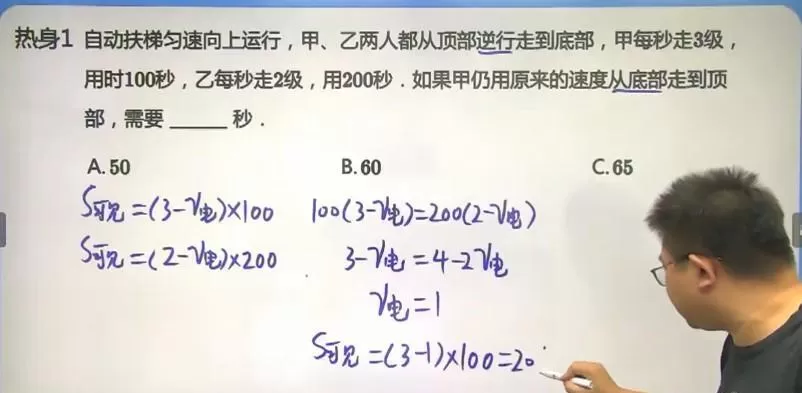 热身1 自动扶梯匀速向上运行，甲、乙两人都从顶部逆行走到底部，甲每秒走3级，
用时100秒，乙每秒走2级，用200秒．如果甲仍用原来的速度从底部走到顶
部，需要 ______ 秒．
A. 50 B. 60 C. 65
S可见=(3-V电)×100 100(3-V电)=200(2-V电)
S可见=(2-V电)×200 3-V电=4-2V电
V电=1
S可见=(3-1)×100=20